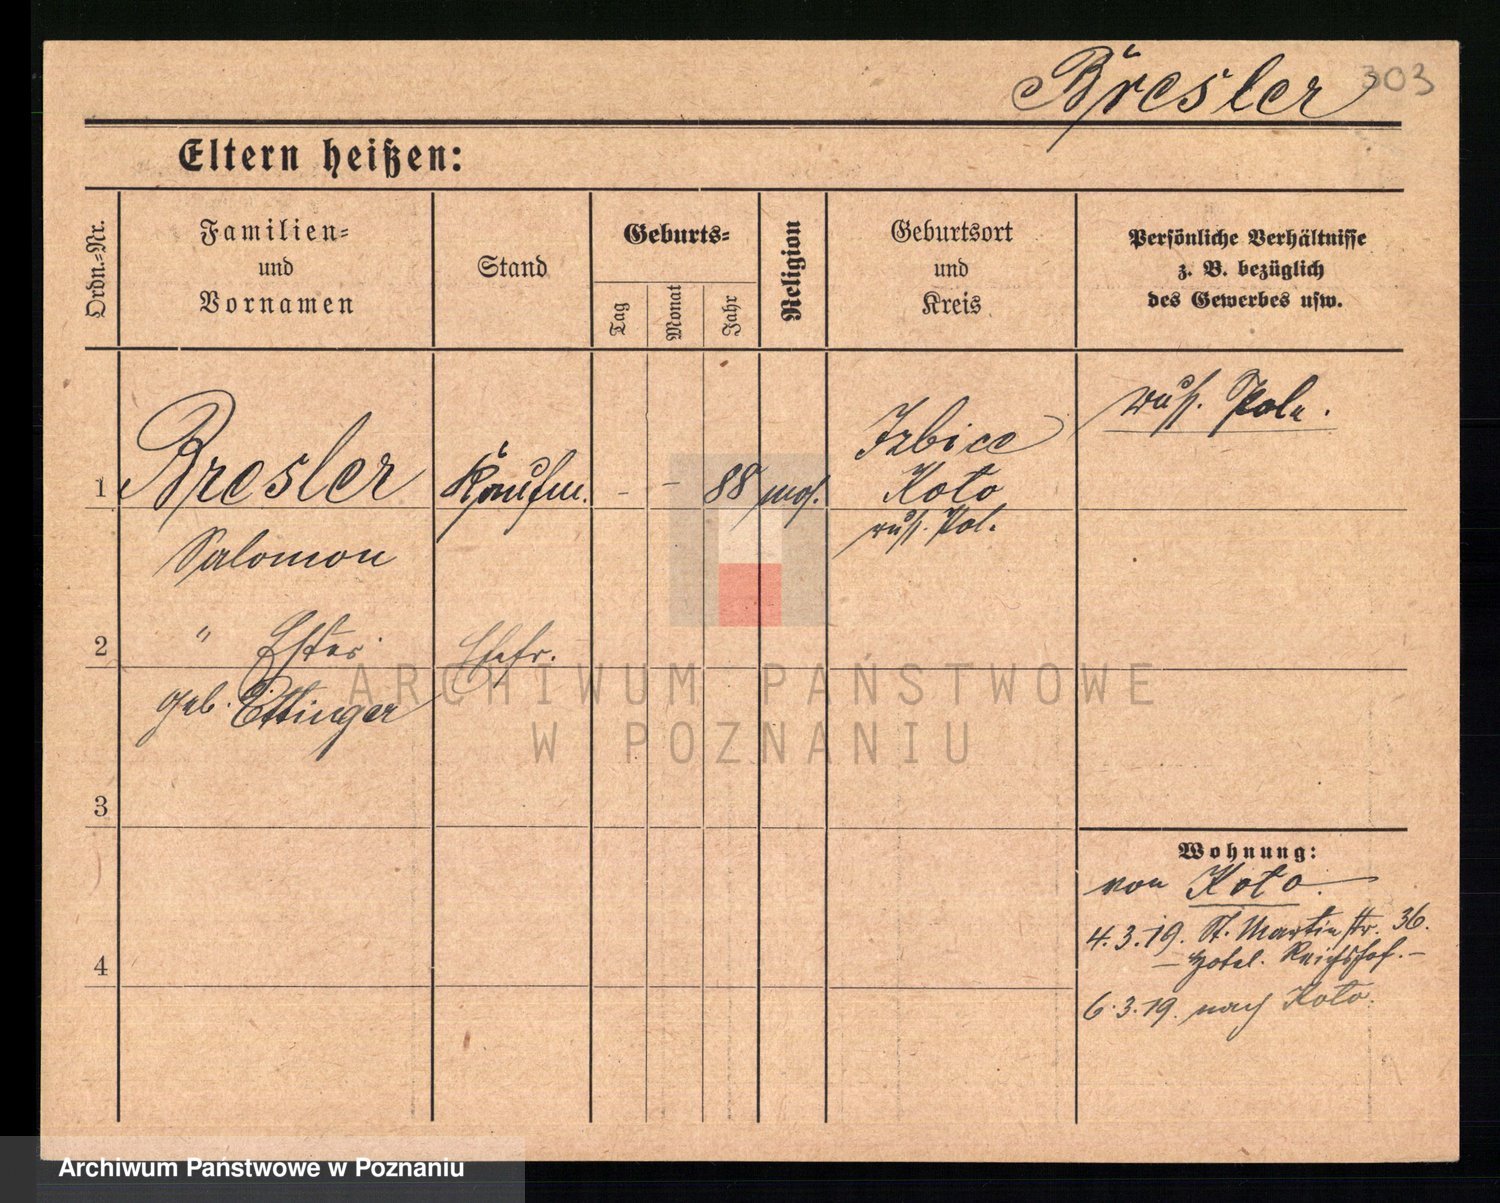 Bresler
303
Eltern heißen:
Ordn.-Nr.
Familien-
und
Vornamen
Stand
Geburts-
Tag
Monat
Jahr
Religion
Geburtsort
und
Kreis
Persönliche Verhältnisse
z. B. bezüglich
des Gewerbes usw.
1 Bresler Kaufm. - - 88 mos. Izbice
Koło
russ. Pol.
russ. Poln.
Salomon
2 " Ester Ehefr.
geb. Ettinger
3
4
Wohnung:
von Koło.
4.3.19. St. Martinstr. 36.
- Hotel. Reichshof. -
6.3.19. nach Koło.
ARCHIWUM PAŃSTWOWE
W POZNANIU
Archiwum Państwowe w Poznaniu